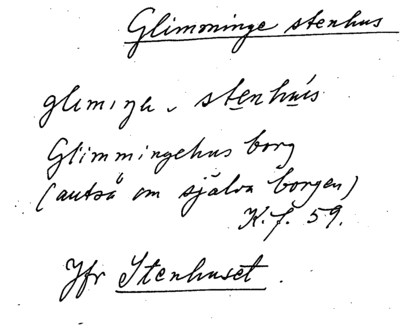 Glimminge stenhus
glımıŋə, ste̱nhú̱s
Glimmingehus borg
(också om själva borgen)
K. f. 59.
Jfr Stenhuset.